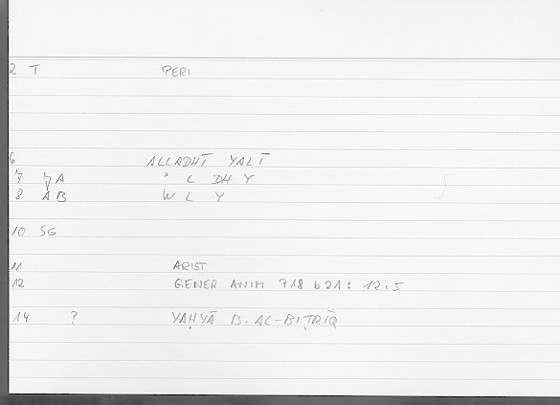 2 T PERI
6 ALLADHĪ YALĪ
7 A ʾ L DH Y
8 AB W L Y
10 SG
11 ARIST
12 GENER ANIM 718 b21 : 12.5
14 ? YAḤYĀ B. AL-BIṬRĪQ